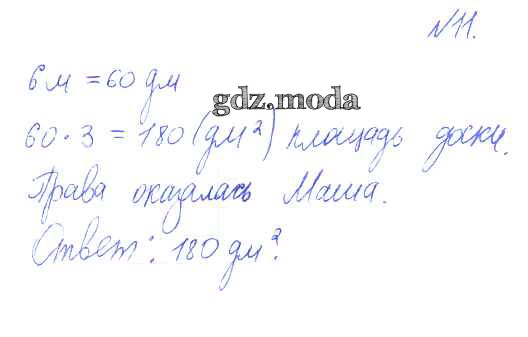 №11.
6 м = 60 дм
gdz.moda
60 · 3 = 180 (дм²) площадь доски.
Права оказалась Маша.
Ответ: 180 дм².